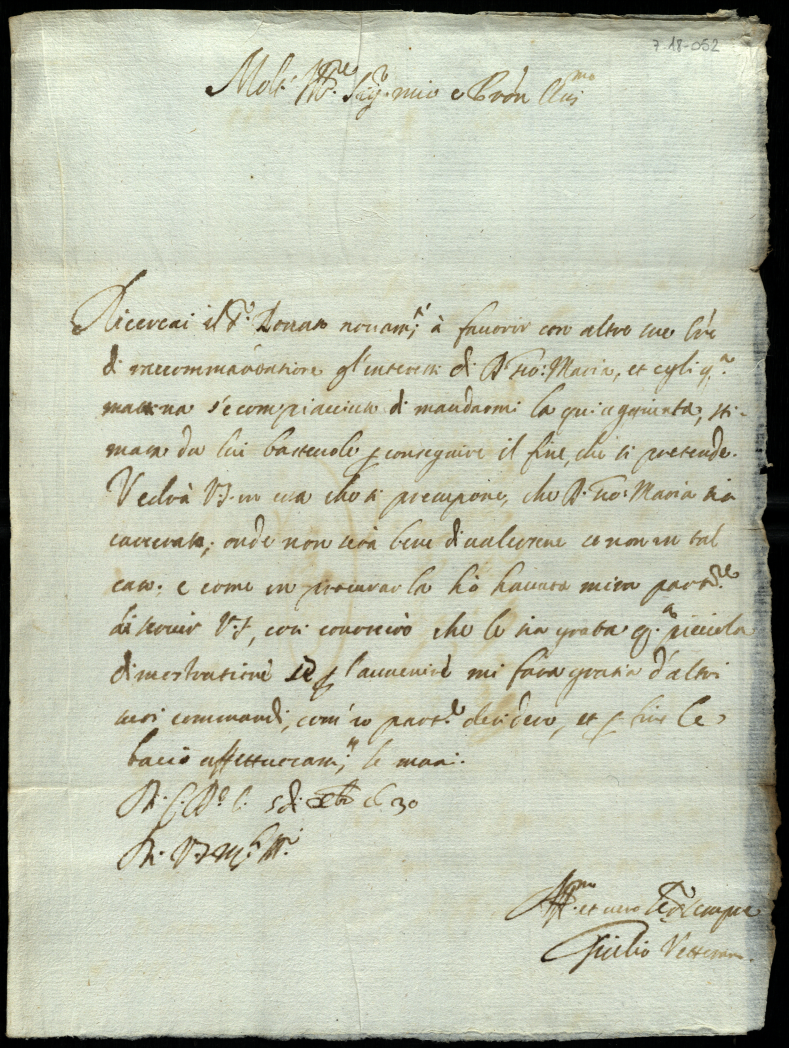 7-18-052
Molt' Ill.re Sig.r mio e Pron Oss.mo
Ricercai il S.r Donato nouam.te à fauorir con altre sue lre
di raccommandatione gl'interessi di D. Gio: Maria, et egli q.a
mattina s'è compiacciuto di mandarmi la qui aggiunta, sti-
mata da lui basteuole p conseguire il fine, che si pretende.
Vedrà V.S. in essa che si presupone, che D. Gio: Maria sia
carcerato; onde non serà bene di ualersene se non in tal
caso; e come in procurarla hò hauuto mira part.re
di seruir V.S, così conoscerò che le sia grata q.a picciola
dimostratione se p l'auuenire mi farà gratia d'altri
suoi commandi, com'io part.e desidero, et p fine le
bacio affettuosam.te le mani.
Di 5 di 30
Di V.S. m.to Ill.re
Aff.mo et uero Ser.re sempre
Giulio